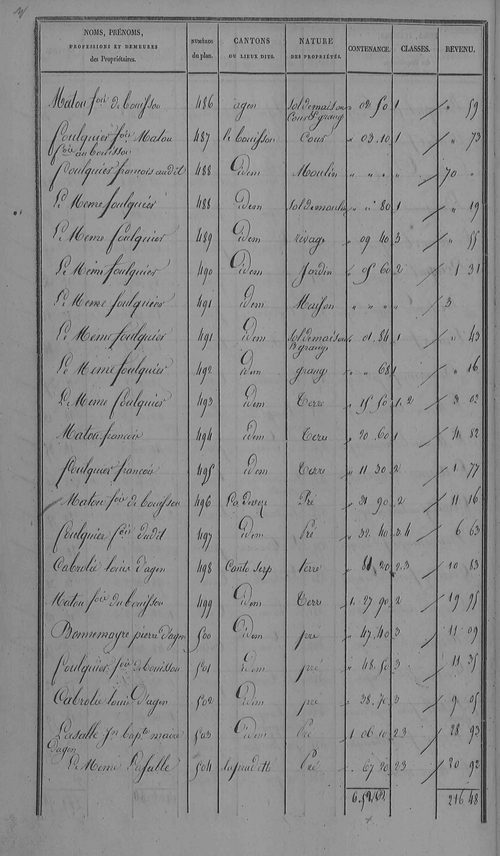 NOMS, PRÉNOMS, PROFESSIONS ET DEMEURES des Propriétaires. NUMÉROS du plan. CANTONS OU LIEUX DITS. NATURE DES PROPRIÉTÉS. CONTENANCE. CLASSES. REVENU.
Matou fois de bouisson 486 agen sol de maison Cour & grang " 02 50 1 " 59
foulquier fois Matou 487 le bouisson Cour " 03.10 1 " 73
fois au bouisson
foulquier francois audit 488 idem Moulin " " " " 70 "
Le Meme foulquier 488 idem sol de moulin " " 80 1 " 19
Le Meme foulquier 489 idem rivage " 09 40 3 " 55
Le Meme foulquier 490 idem Jardin " 05 60 2 1 31
Le Meme foulquier 491 idem Maison " " " 3
Le Meme foulquier 491 idem sol de maison & grang " 01.84 1 " 43
Le Meme foulquier 492 idem grang " " 68 1 " 16
Le Meme foulquier 493 idem Terre " 15 50 1.2 3 02
Matou francois 494 idem Terre " 20.60 1 4 82
foulquier francois 495 idem Terre " 11 30 2 1 77
Matou fois de bouisson 496 Pré " 31 90 2 11 16
foulquier fois dudit 497 idem Pré " 32 40 3.4 6 63
Cabrolié louis d'agen 498 terre 20 2.3 10 83
Matou fois du bouisson 499 idem Terre 1. 27 90 2 19 95
Bonnemayre pierre d'agen 500 idem pré " 47.40 3 11 09
foulquier fois de bouisson 501 idem pré " 48.50 3 11 35
Cabrolié louis d'agen 502 idem pré " 38.70 3 9 05
Lasalle Jn bapte maire 503 idem Pré 1 06 10 2 3 28 93
d'agen
Le Meme Lasalle 504 Pré " 67 20 2 3 20 92
216 48